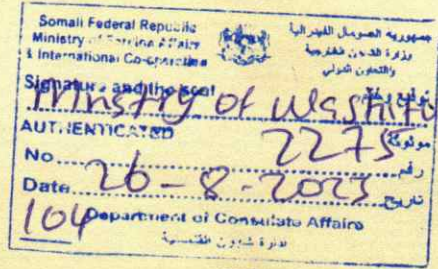 Somali Federal Republic
Ministry of Foreign Affairs
& International Co-operation
جمهورية الصومال الفيدرالية
وزارة الشئون الخارجية
والتعاون الدولي
Signature and the seal
Ministry of
AUTHENTICATED
2275
No
رقم
Date 26-8-2023 تاريخ
104 Department of Consulate Affairs
ادارة شئوون القنصلية